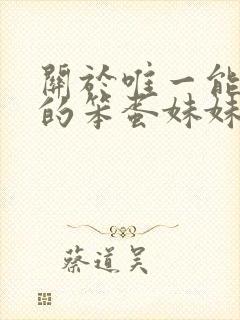 關於唯一能
的笨蛋妹妹
蔡道吴